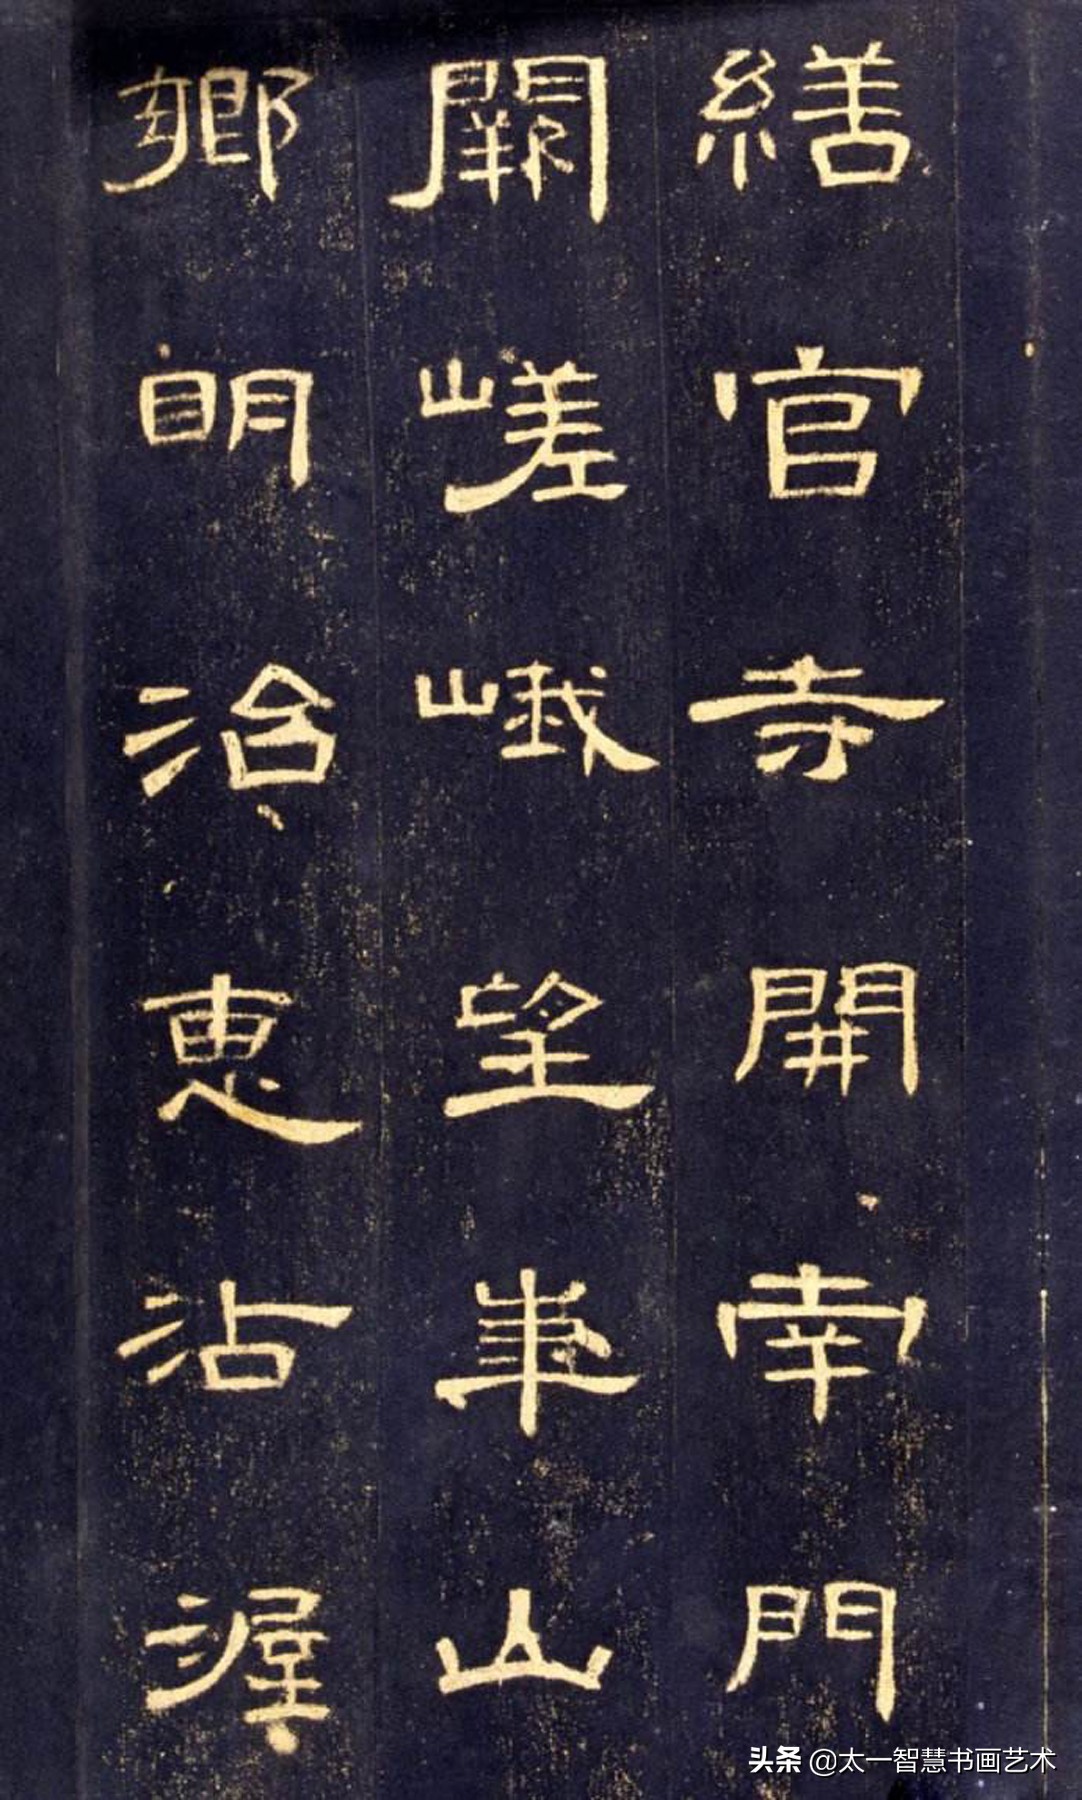 繕官寺開南門
闕嵯峨望華山
鄉明治惠沾渥
头条 @太一智慧书画艺术